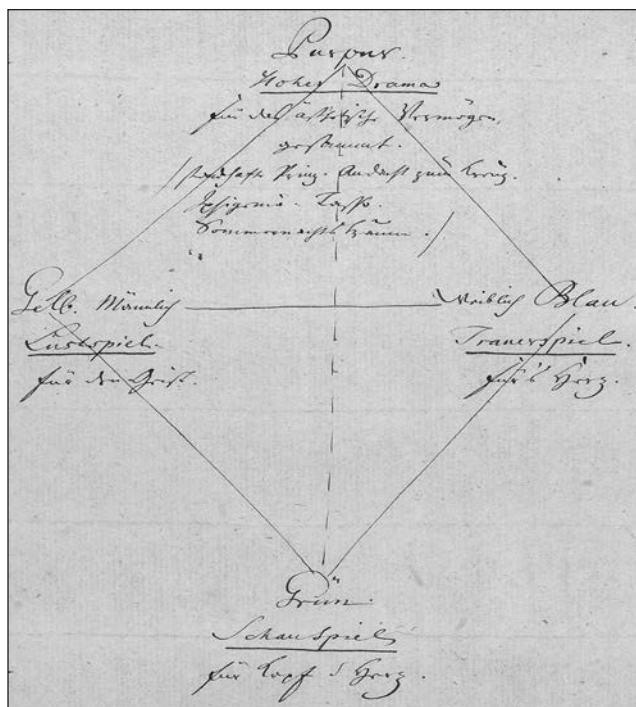 Purpur.
Hohes Drama
für das ästhetische Vermögen,
gestimmt.
/standhafte Prinz. Andacht zum Kreuz.
Iphigenia. Tasso.
Sommernachtstraum./
Gelb. Männlich Weiblich Blau.
Lustspiel. Trauerspiel.
für den Geist. für's Herz.
Grün.
Schauspiel
für Kopf & Herz.